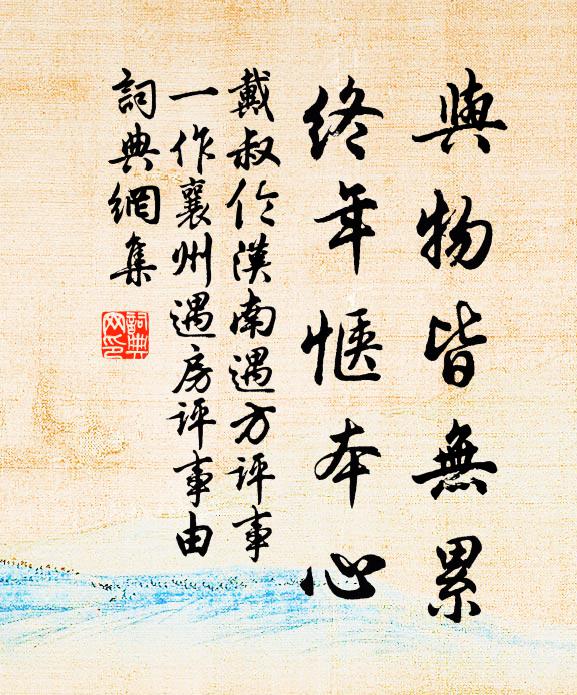 與物皆無累
終年愜本心
戴叔伦漢南遇方评事
一作襄州遇房评事由
詞典網集
詞典
网印